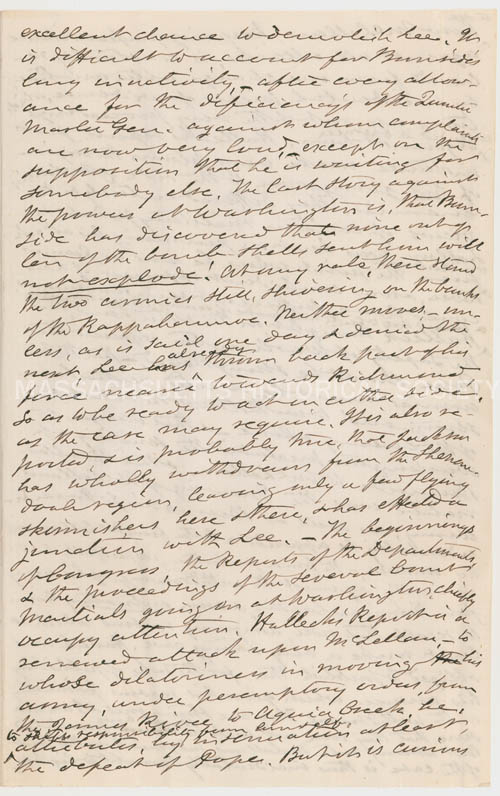 excellent chance to demolish Lee. It
is difficult to account for Burnside's
long inactivity, - after every allow-
ance for the deficiencies of the Quarter
Master Gen. against whom complaints
are now very loud, - except on the
supposition that he is waiting for
somebody else. The last story against
the powers at Washington is, that Burn-
side has discovered that nine out of
ten of the bomb shells sent him will
not explode! At any rate, there stand
the two armies still, shivering on the banks
of the Rappahannoc. Neither moves, - un-
less, as is said one day & denied the
next, Lee has already thrown back part of his
force nearer towards Richmond
MASSACHUSETTS HISTORICAL SOCIETY
so as to be ready to act on either side,
as the case may require. It is also re-
ported, & is probably true, that Jackson
has wholly withdrawn from the Shenan-
doah region, leaving only a few flying
skirmishers here & there, & has effected a
junction with Lee. - The beginnings
of Congress, the Reports of the Departments
& the proceedings of the several Courts
Martials going on at Washington, chiefly
occupy attention. Halleck's Report is a
renewed attack upon McLellan, - to
whose dilatoriness in moving his
army, under peremptory orders, from
the James River to Aquia Creek, he,
to shift responsibility from himself,
attributes, by insinuation at least
the defeat of Pope. But it is curious